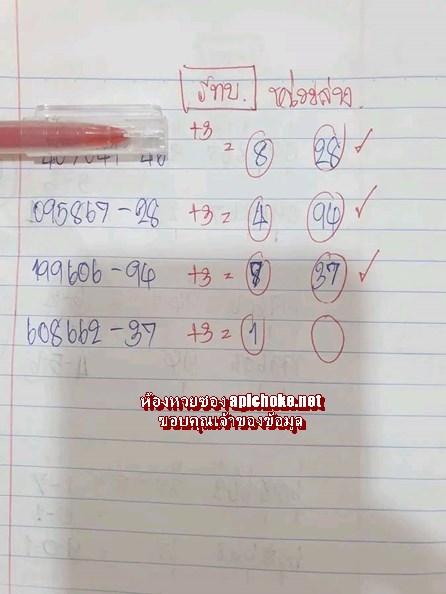 รทบ. หน่วยล่าง
+3 = 8 28 ✓
095867-28 +3 = 4 94 ✓
199606-94 +3 = 7 37 ✓
608662-37 +3 = 1
ห้องหวยซอง apichoke.net
ขอบคุณเจ้าของข้อมูล